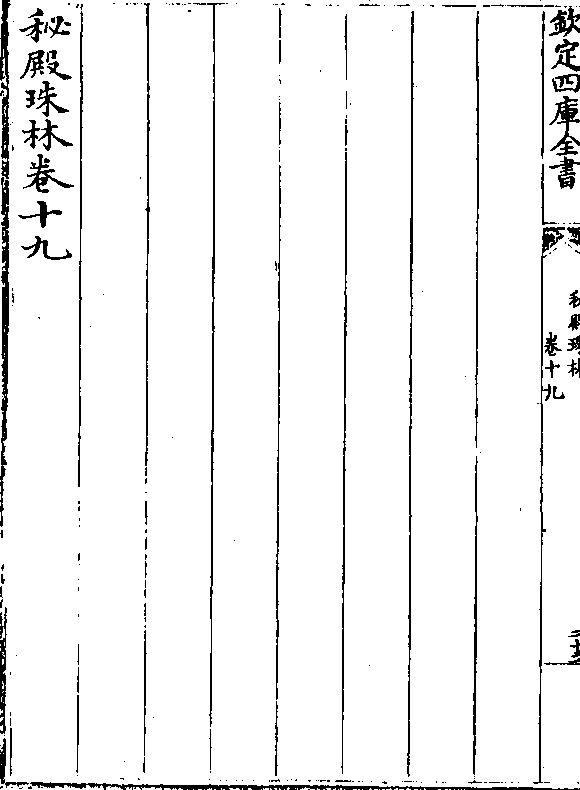 欽定四庫全書
秘殿珠林
卷十九
秘殿珠林卷十九